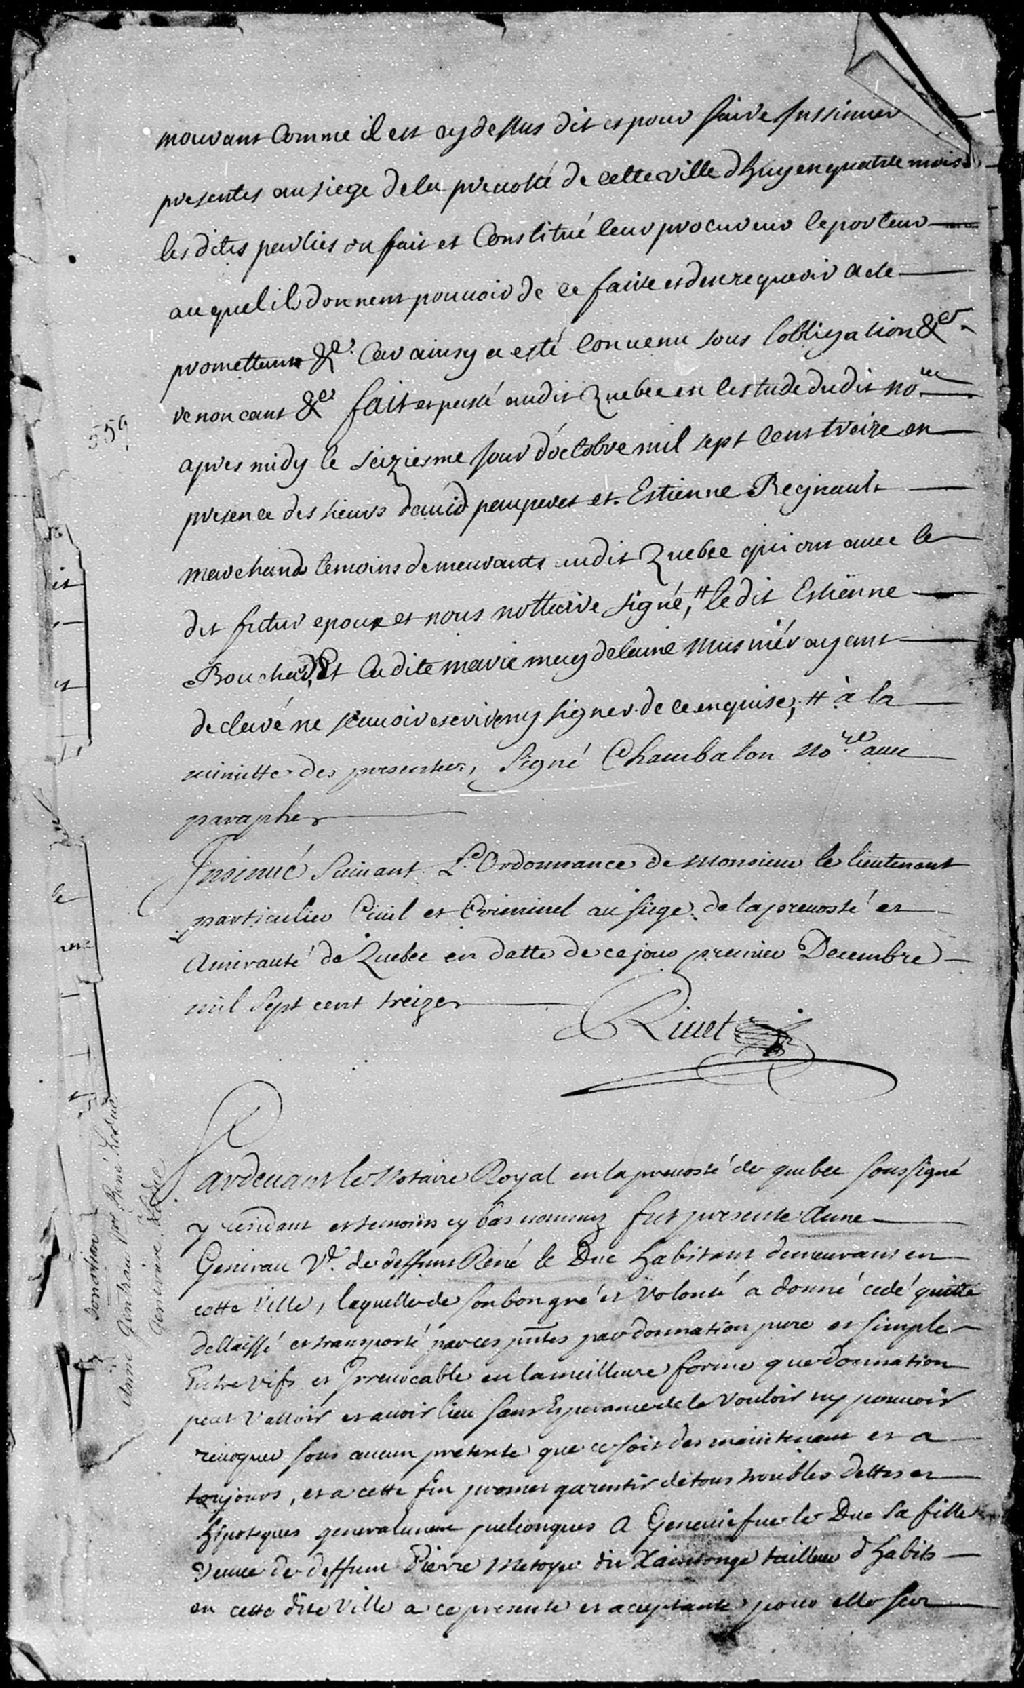 mouvant comme il est cy dessus dit et pour faire Inssinuer
presentes au siege de la prevosté de cette ville d'huy en quatre mois
les dites parties on fait et Constitué leur procureur le porteur
au quel il donnent pouvoir de ce faire et den requerir acte
promettans &ca. Car ainsy a esté convenu sous lobligation &ca
renoncant &ca fait et passé audit Quebec en lestude dudit nore
apres midy le seiziesme jour d'octobre mil sept cent treize en
presence des sieurs david pauperet et Estienne Regnault
marchands temoins demeurants audit Quebec qui ont avec le
dit futur epoux et nous nottaire signé, # le dit Estienne
Bouchard, Et ladite marie magdelaine musnier ayant
declaré ne scavoir escrire ny signer de ce enquise, # à la
minutte des presentes, Signé Chambalon nore. avec
paraphe
Insinué Suivant L'Ordonnance de Monsieur le lieutenant
particulier Civil et Criminel au siege de la prevosté et
Amirauté de Quebec en datte de ce jour premier Decembre
mil sept cent treize
Rivet
559
donation
Anne Gentreau
Pardevant le Notaire Royal en la prevosté de quebec soussigné
y residant et temoins cy bas nommez fut presente Anne
Genireau Ve. de deffunt René le Duc habitant demeurant en
cette Ville, laquelle de son bon gré et volonté a donné cedé quitté
dellaissé et transporté par ces pntes par donnation pure et simple
Entre vifs et Irrevocable en la meilleure forme que donnation
peut valloir et avoir lieu sans Esperance de la vouloir ny pouvoir
revoquer sous aucun pretexte que ce soit des maintenant et a
toujours, et a cette fin promet garentir de tous troubles dettes et
hipoteques generalement quelconques A Geneviefve le Duc sa fille
veuve de deffunt Pierre Metayer dit Xaintonge tailleur d'habits
en cette dite ville a ce presente et acceptante pour elle ses